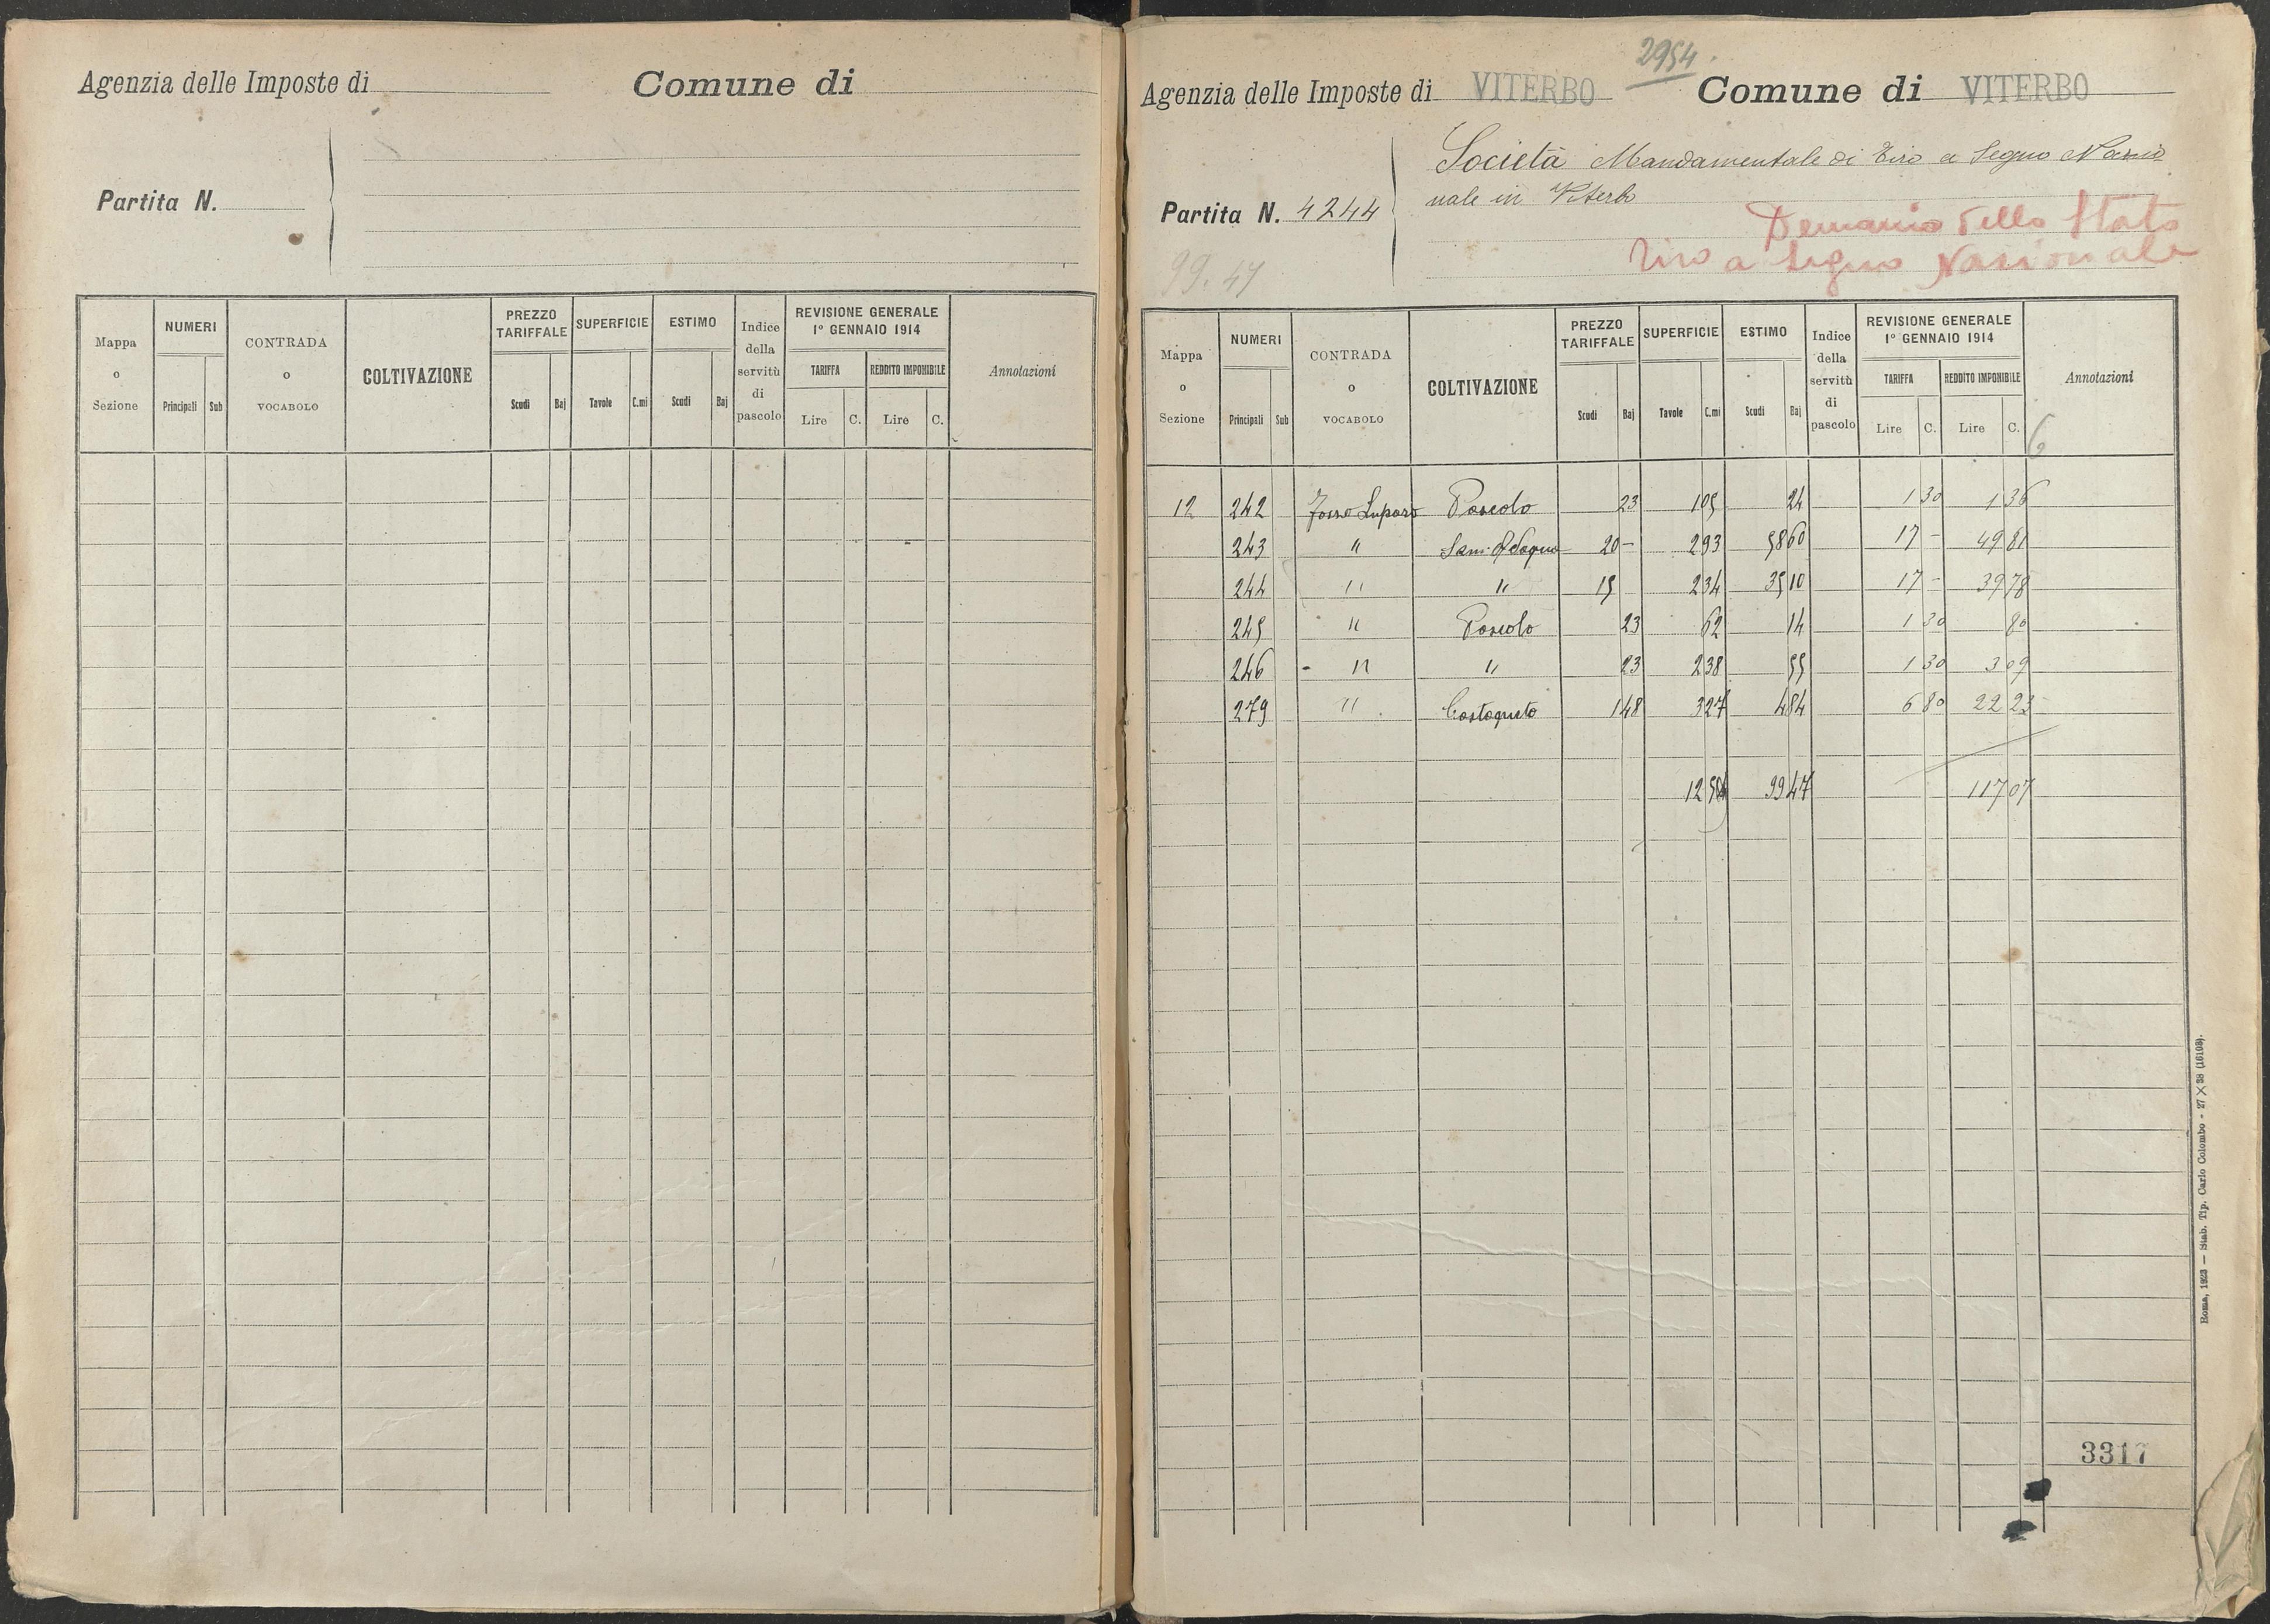 Agenzia delle Imposte di
Comune di
Partita N.
Mappa o Sezione
NUMERI
Principali
Sub
CONTRADA o VOCABOLO
COLTIVAZIONE
PREZZO TARIFFALE
Scudi
Baj
SUPERFICIE
Tavole
C.mi
ESTIMO
Scudi
Baj
Indice della servitù di pascolo
REVISIONE GENERALE
1º GENNAIO 1914
TARIFFA
Lire
C.
REDDITO IMPONIBILE
Lire
C.
Annotazioni
2954
Agenzia delle Imposte di VITERBO
Comune di VITERBO
Società Mandamentale di Tiro a Segno Nazio
nale in Viterbo
Partita N. 4244
Demanio dello Stato
Tiro a Segno Nazionale
99.47
Mappa o Sezione
NUMERI
Principali
Sub
CONTRADA o VOCABOLO
COLTIVAZIONE
PREZZO TARIFFALE
Scudi
Baj
SUPERFICIE
Tavole
C.mi
ESTIMO
Scudi
Baj
Indice della servitù di pascolo
REVISIONE GENERALE
1º GENNAIO 1914
TARIFFA
Lire
C.
REDDITO IMPONIBILE
Lire
C.
Annotazioni
6
12 242 Fosso Luparo Pascolo 23 1 05 24 1 30 1 36
243 " Sem. 20 - 2 93 58 60 17 - 49 81
244 " " 15 2 34 35 10 17 - 39 78
245 " Pascolo 23 62 14 1 30 80
246 - " " 23 2 38 55 1 30 3 09
279 " Castagneto 1 48 3 27 4 84 6 80 22 23
12 59 99 47 117 07
3317
Roma, 1923 — Stab. Tip. Carlo Colombo - 27 × 38 (16108).